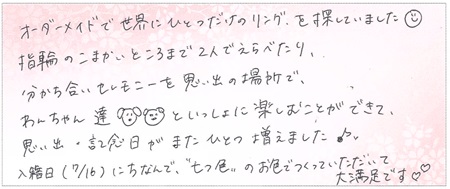 オーダーメイドで世界にひとつだけのリングを探していました
指輪のこまかいところまで2人でえらべたり、
分かち合いセレモニーを思い出の場所で、
わんちゃん達といっしょに楽しむことができて、
思い出・記念日がまたひとつ増えました♪。
入籍日(7/16)にちなんで、"七つ色"のお色でつくっていただいて
大満足です♡♡